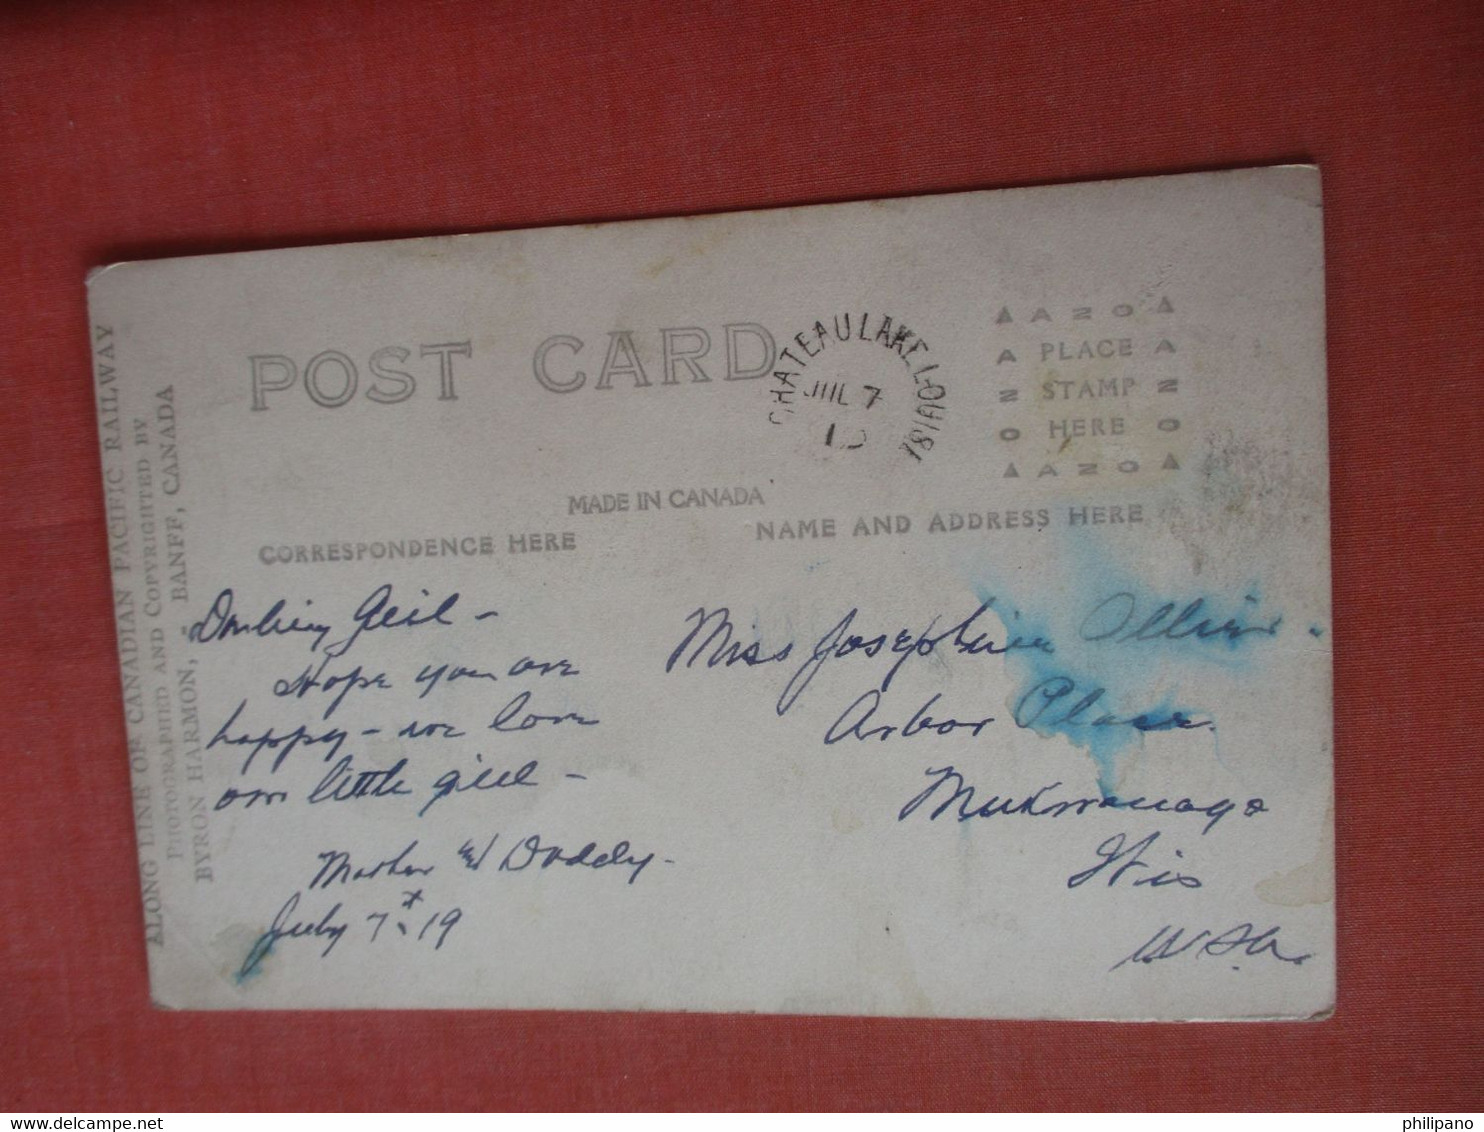 POST CARD
CHATEAU LAKE LOUISE
JUL 7
AZO
PLACE
STAMP
HERE
AZO
MADE IN CANADA
CORRESPONDENCE HERE
NAME AND ADDRESS HERE
ALONG LINE OF CANADIAN PACIFIC RAILWAY
PHOTOGRAPHED AND COPYRIGHTED BY
BYRON HARMON, BANFF, CANADA
Darling Girl -
Hope you are
happy - we love
our little girl -
Mother & Daddy -
July 7th 19
Miss Josephine
Arbor Place
Mukwonago
Wis
USA.
philipano